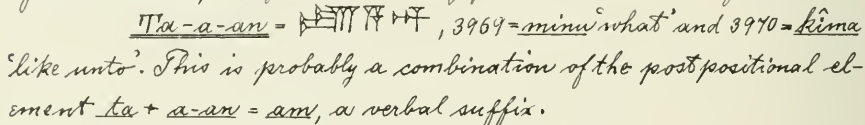 Ta-a-an = 𒋫𒀀𒀀𒀭, 3969 = minu 'what' and 3970 = kîma
'like unto'. This is probably a combination of the postpositional el-
ement ta + a-an = am, a verbal suffix.